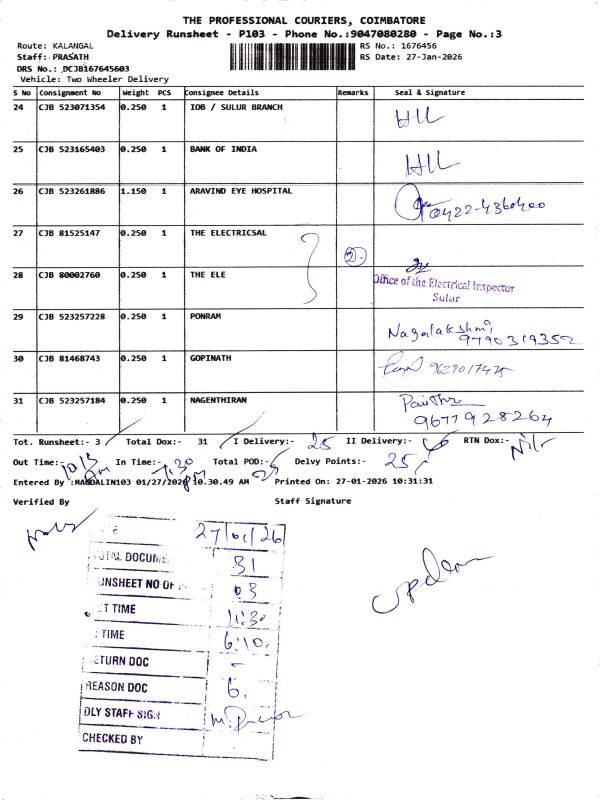 THE PROFESSIONAL COURIERS, COIMBATORE
Delivery Runsheet - P103 - Phone No.:9047080280 - Page No.:3
Route: KALANGAL RS No.: 1676456
Staff: PRASATH RS Date: 27-Jan-2026
DRS No.: DCJB167645603
Vehicle: Two Wheeler Delivery
S No Consignment No Weight PCS Consignee Details Remarks Seal & Signature
24 CJB 523071354 0.250 1 IOB / SULUR BRANCH
25 CJB 523165403 0.250 1 BANK OF INDIA
26 CJB 523261886 1.150 1 ARAVIND EYE HOSPITAL 0422-4360400
27 CJB 81525147 0.250 1 THE ELECTRICSAL
2.
28 CJB 80002760 0.250 1 THE ELE Office of the Electrical Inspector
Sulur
29 CJB 523257228 0.250 1 PONRAM Nagalakshmi
9790319352
30 CJB 81468743 0.250 1 GOPINATH 9629017475
31 CJB 523257184 0.250 1 NAGENTHIRAN
9677928264
Tot. Runsheet:- 3 Total Dox:- 31 I Delivery:- 25 II Delivery:- 6 RTN Dox:- Nil
Out Time:- In Time:- 7.30 Pm Total POD:- 25 Delvy Points:- 25
Entered By :MAGDALIN103 01/27/2026 10.30.49 AM Printed On: 27-01-2026 10:31:31
Verified By Staff Signature
27/01/26
TOTAL DOCUME 31
UNSHEET NO OF 03
T TIME 11:30
TIME 6:10.
ETURN DOC -
REASON DOC 6.
DLY STAFF SIGN
CHECKED BY